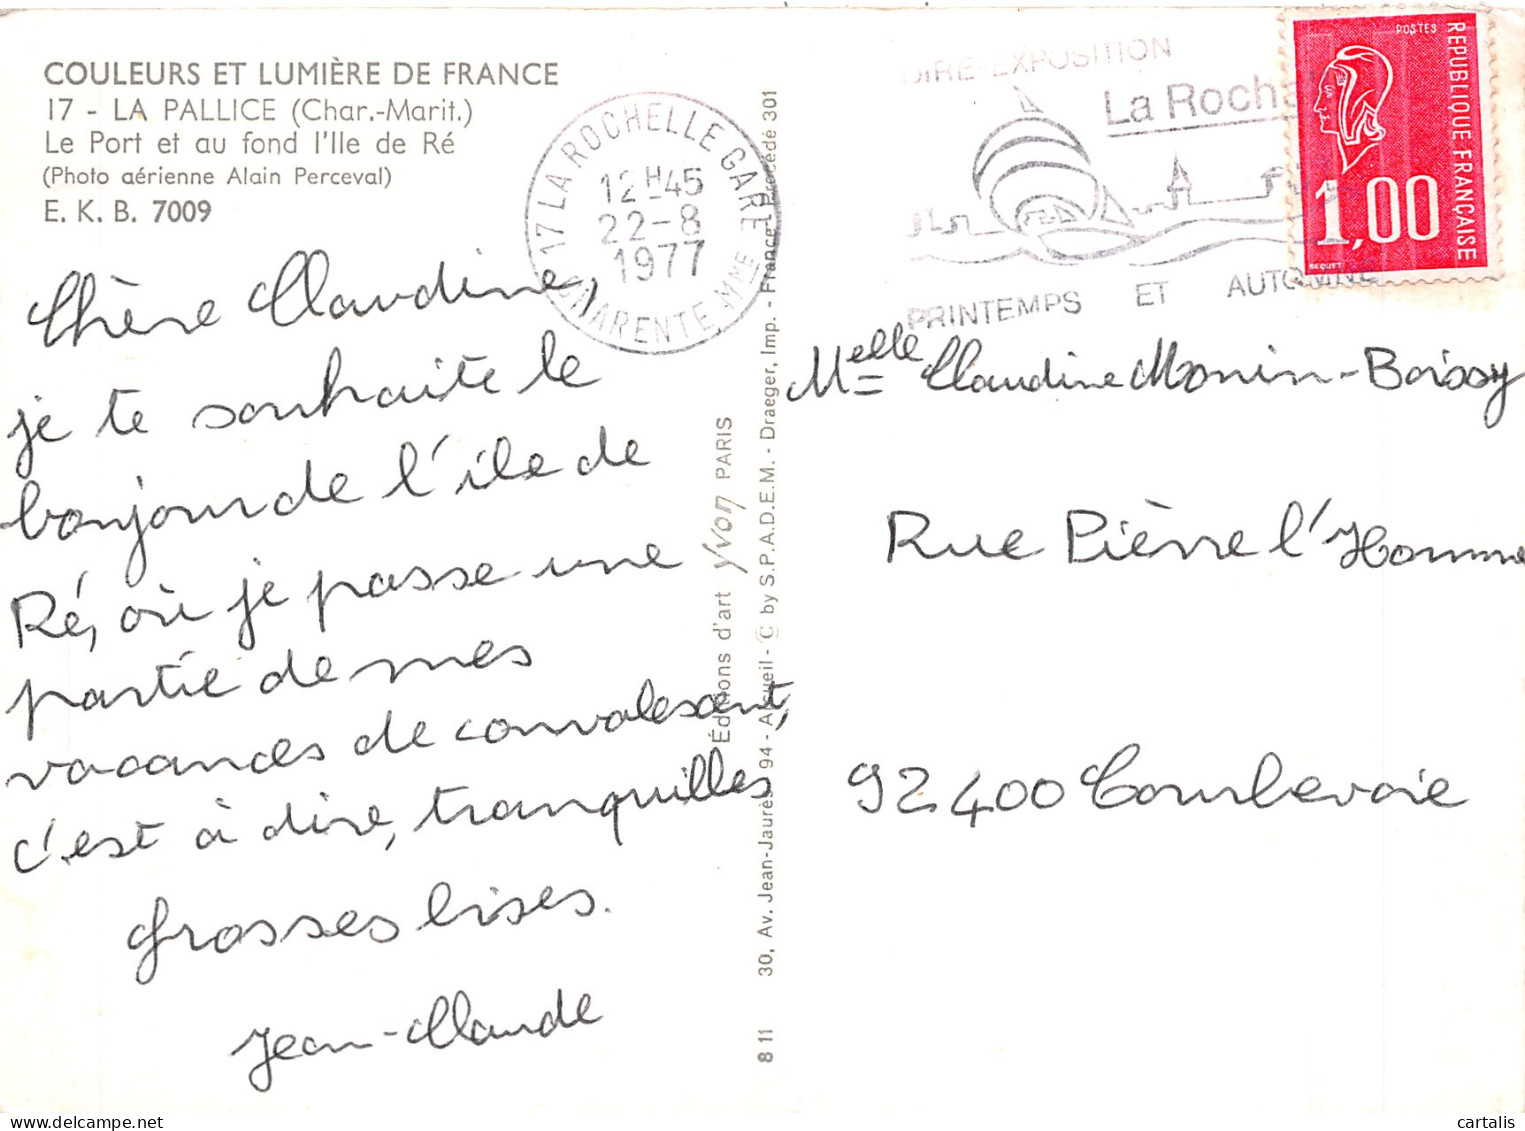 COULEURS ET LUMIÈRE DE FRANCE
17 - LA PALLICE (Char.-Marit.)
Le Port et au fond l'Ile de Ré
(Photo aérienne Alain Perceval)
E. K. B. 7009
Chère Claudine,
je te souhaite le
bonjour de l'île de
Ré, où je passe une
partie de mes
vacances de convalesant,
c'est à dire, tranquilles
Grosses bises.
Jean-Claude
17 LA ROCHELLE GARE
12H45
22-8
1977
CHARENTE Mme
Éditions d'art Yvon PARIS
30, Av. Jean-Jaurès - 94 - Arcueil - © by S.P.A.D.E.M. - Draeger, Imp. - France - Procédé 301
8 11
OIRE-EXPOSITION
La Roche
PRINTEMPS ET AUTOMNE
POSTES
REPUBLIQUE FRANÇAISE
1,00
BEQUET
Melle Claudine Monin-Boissy
Rue Pièrre l'Homme
92400 Courbevoie
cartalis